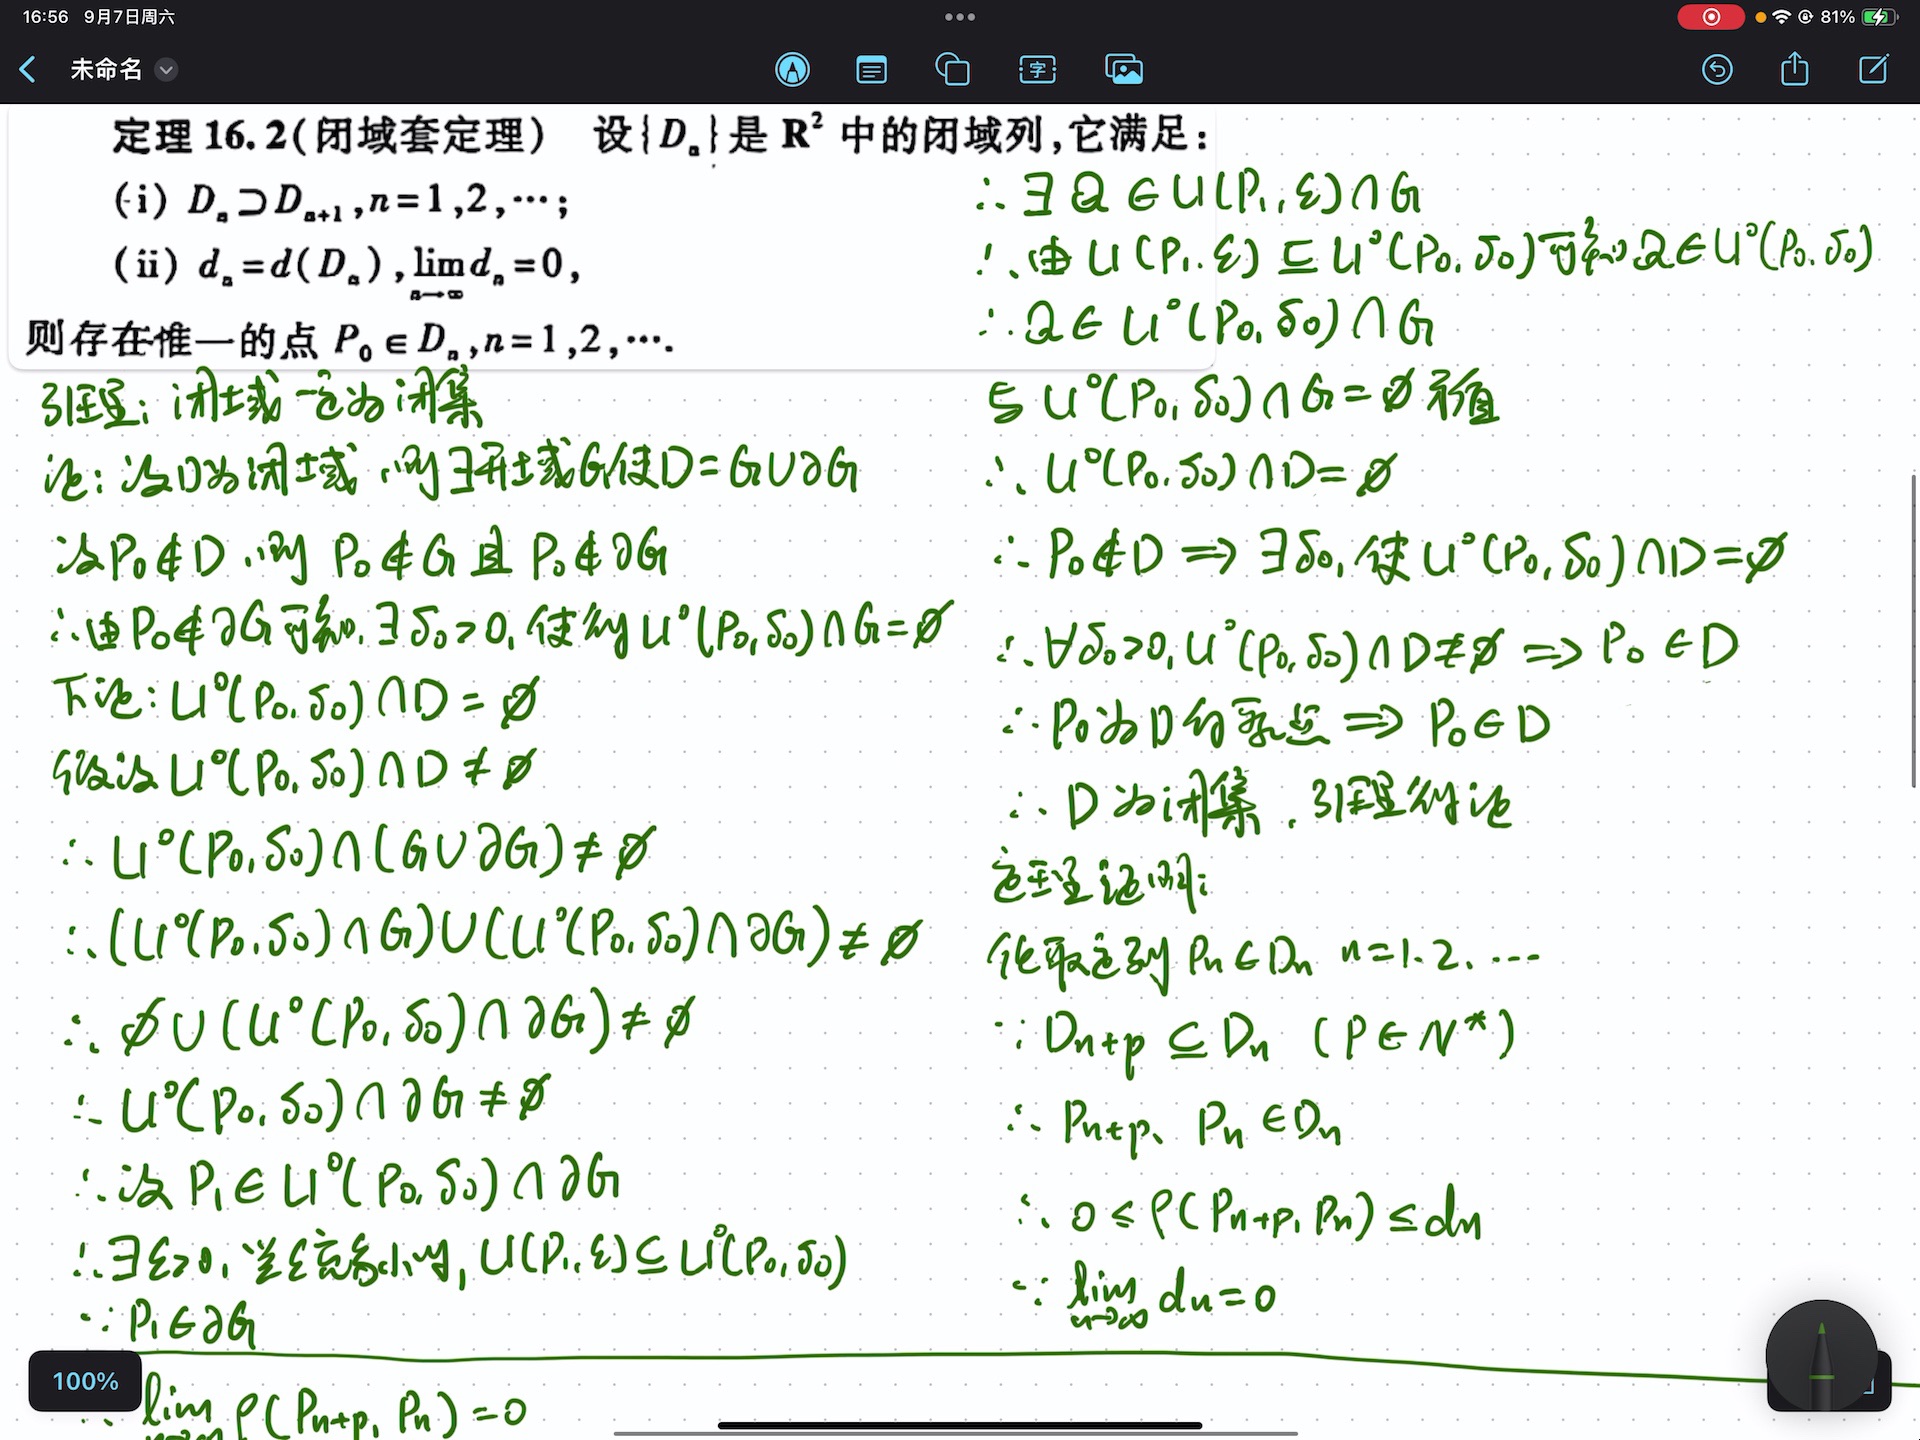 16:56 9月7日周六
81%
未命名
字
定理 16.2(闭域套定理) 设{Dₙ}是 R² 中的闭域列,它满足:
(i) Dₙ⊃Dₙ₊₁,n=1,2,⋯;
(ii) dₙ=d(Dₙ),lim dₙ=0,
n→∞
则存在惟一的点 P₀∈Dₙ,n=1,2,⋯.
引理:闭域一定为闭集
证:设D为闭域,则∃开域G使D=G∪∂G
设P₀∉D,则 P₀∉G 且 P₀∉∂G
∴由P₀∉∂G可知,∃δ₀>0,使得U°(P₀,δ₀)∩G=∅
下证:U°(P₀,δ₀)∩D=∅
假设U°(P₀,δ₀)∩D≠∅
∴U°(P₀,δ₀)∩(G∪∂G)≠∅
∴(U°(P₀,δ₀)∩G)∪(U°(P₀,δ₀)∩∂G)≠∅
∴∅∪(U°(P₀,δ₀)∩∂G)≠∅
∴U°(P₀,δ₀)∩∂G≠∅
∴设P₁∈U°(P₀,δ₀)∩∂G
∴∃ε>0,当ε充分小时,U(P₁,ε)⊆U°(P₀,δ₀)
∵P₁∈∂G
∴∃Q∈U(P₁,ε)∩G
∴由U(P₁,ε)⊆U°(P₀,δ₀)可知Q∈U°(P₀,δ₀)
∴Q∈U°(P₀,δ₀)∩G
与U°(P₀,δ₀)∩G=∅矛盾
∴U°(P₀,δ₀)∩D=∅
∴P₀∉D⇒∃δ₀,使U°(P₀,δ₀)∩D=∅
∴∀δ₀>0,U°(P₀,δ₀)∩D≠∅⇒P₀∈D
∴P₀为D的聚点⇒P₀∈D
∴D为闭集.引理得证
定理证明:
任取定到Pₙ∈Dₙ n=1.2.⋯
∵Dₙ₊ₚ⊆Dₙ (P∈N*)
∴Pₙ₊ₚ、Pₙ∈Dₙ
∴0≤ρ(Pₙ₊ₚ,Pₙ)≤dₙ
∵lim dₙ=0
n→∞
∴lim ρ(Pₙ₊ₚ,Pₙ)=0
100%